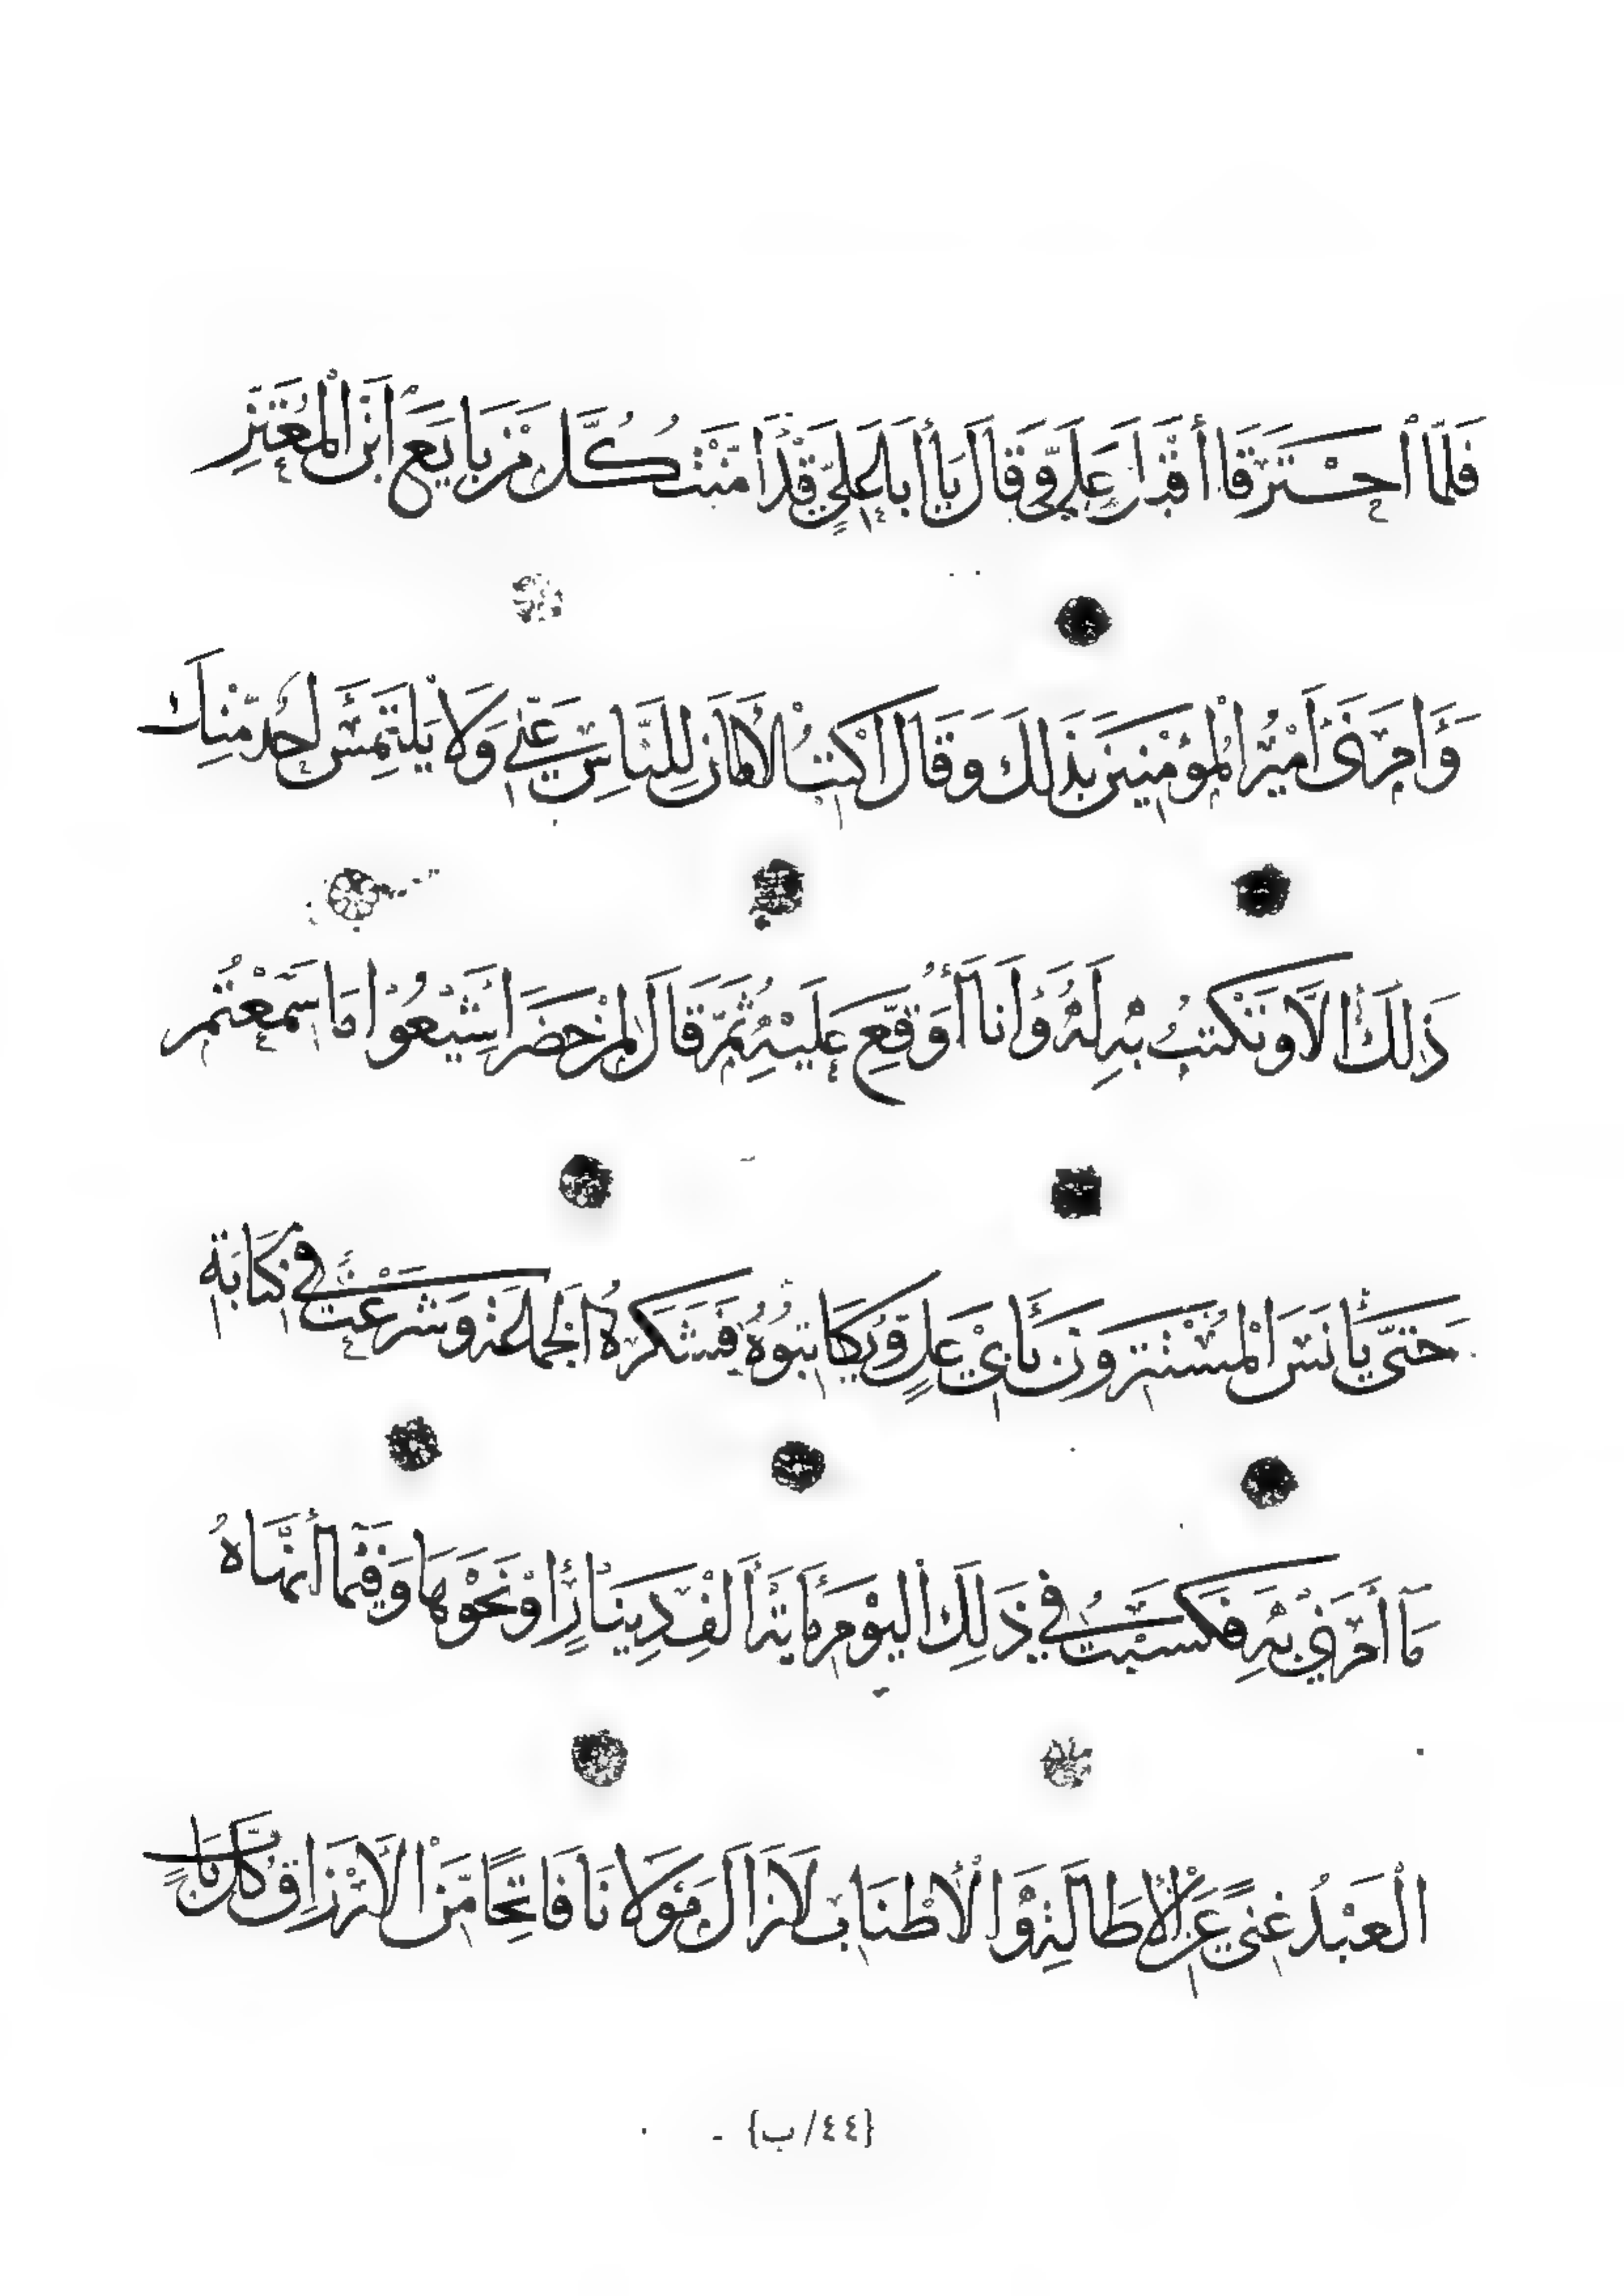 فَلَمَّا ٱحْتَرَقَا أَقْبَلَ عَلَيَّ وَقَالَ يَا أَبَا عَلِيٍّ قَدْ أَمَّنْتُ كُلَّ مَنْ بَايَعَ ابْنَ الْمُعْتَزِّ
وَأَمَرَنِي أَمِيرُ الْمُؤْمِنِينَ بِذَلِكَ وَقَالَ اكْتُبْ الْأَمَانَ لِلنَّاسِ عَنِّي وَلَا يَلْتَمِسْ أَحَدٌ مِنْكَ
ذَلِكَ إِلَّا وَتَكْتُبُ بِهِ لَهُ وَأَنَا أُوَقِّعُ عَلَيْهِ ثُمَّ قَالَ لِمَنْ حَضَرَ أَشِيْعُوا مَا سَمِعْتُمْ
حَتَّى يَأْنَسَ الْمُسْتَتِرُونَ بِأَبِي عَلِيٍّ وَيُكَاتِبُوهُ فَشَكَرَهُ الْجَمَاعَةُ وَشَرَعْتُ فِي كِتَابَةِ
مَا أَمَرَنِي بِهِ فَكَسَبْتُ فِي ذَلِكَ الْيَوْمِ مِايَةَ أَلْفِ دِينَارٍ أَوْ نَحْوَهَا وَفِيْمَا أَنْهَاهُ
الْعَبْدُ غِنًى عَنِ الْإِطَالَةِ وَالْإِطْنَابِ لَا زَالَ مَوْلَانَا فَاتِحًا مِّنَ الْأَرْزَاقِ كُلَّ بَابٍ
{٤٤/ب}